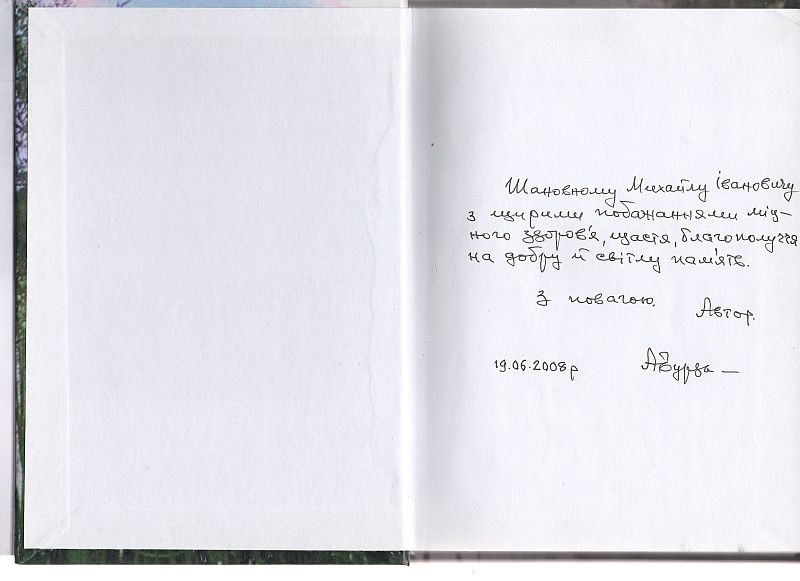 Шановному Михайлу Івановичу
з щирими побажаннями міц-
ного здоров'я, щастя, благополуччя
на добру й світлу пам'ять.
З повагою. Автор.
19.06.2008р